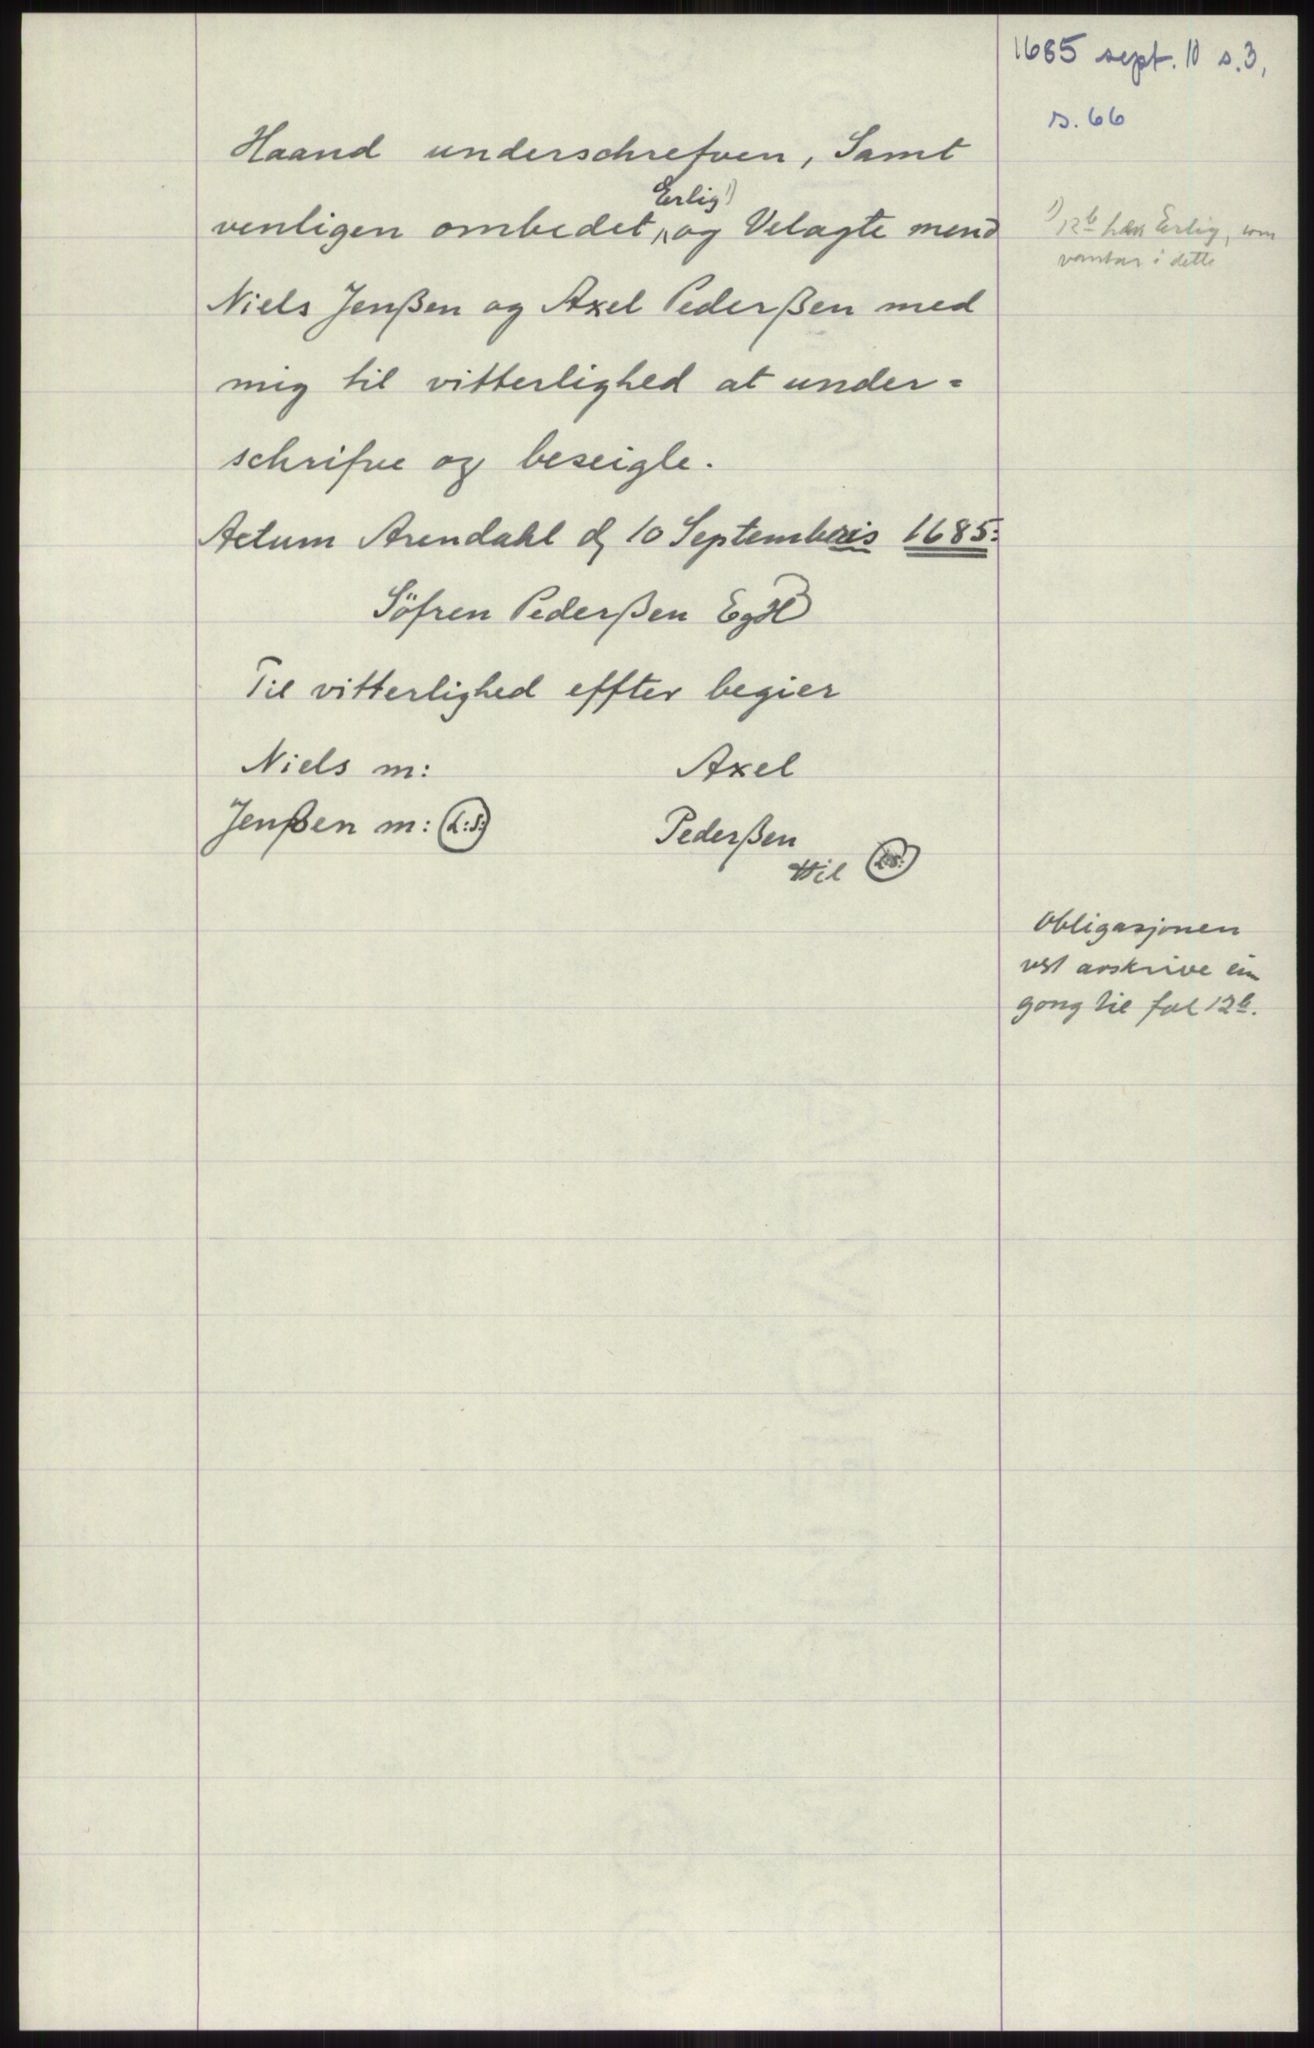 1685 sept. 10 s.3,
s. 66
Haand underschrefven, Samt
Erlig 1)
venligen ombedet og Velagte mend
1) 12b har Erlig, som
vantar i dette
Niels Jenßen og Axel Pederßen med
mig til vitterlighed at under=
schrifve og beseigle.
Actum Arendahl d 10 Septembris 1685:
Söfren Pederßen EgH
Til vitterlighed effter begier
Niels m: Axel
Jenßen m: L:S: Pederßen
L:S:
Obligasjonen
vert avskrive ein
gong til fol 12b.